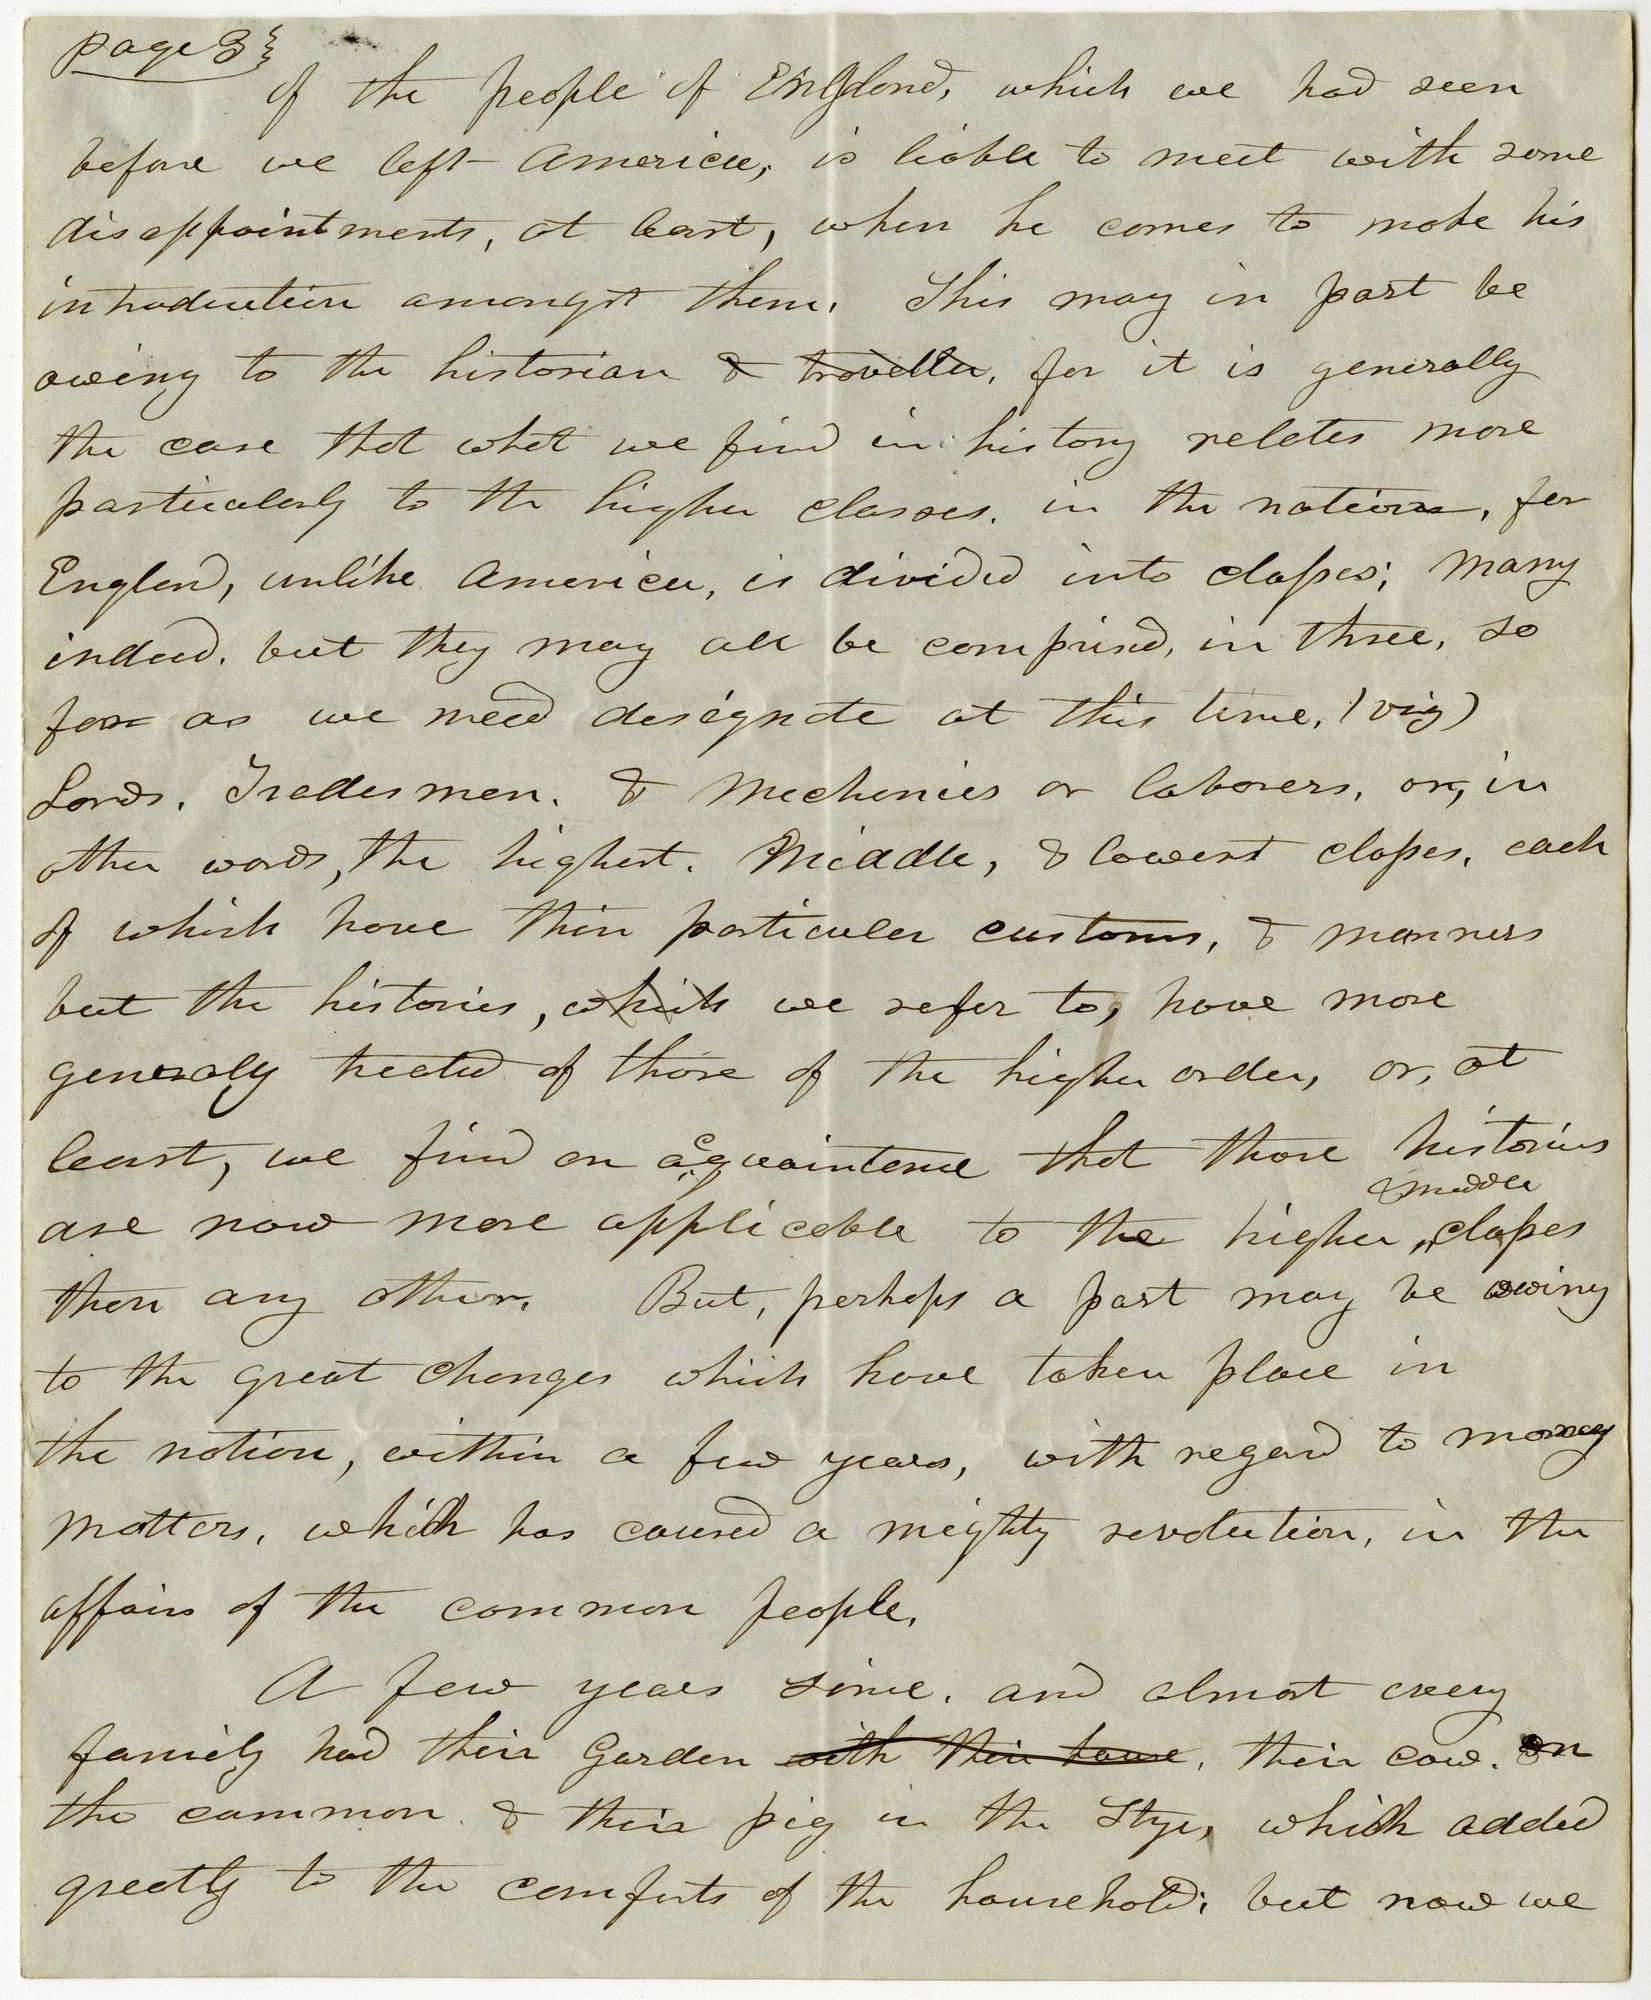 page 3}
of the people of England, which we had seen
before we left America, is liable to meet with some
disappointments, at least, when he comes to make his
introduction amongst them. This may in part be
owing to the historian & traveller, for it is generally
the case that what we find in history relates more
particularly to the higher classes. in the nation, for
England, unlike America, is divided into classes; many
indeed. but they may all be comprised, in three, so
far as we need designate at this time, (viz)
Lords, Tradesmen. & Mechanics or laborers, or, in
other words, the highest. Middle, & lowest classes, each
of which have their particular customs, & manners
but the histories, which we refer to, have more
generaly treated of those of the higher order, or, at
least, we find on acquaintence that those histories
& middle
are now more applicable to the higher classes
then any other. But, perhaps a part may be owing
to the great changes which have taken place in
the nation, within a few years, with regard to money
matters, which has caused a mighty revolution, in the
affairs of the common people.
A few years since, and almost every
family had their Garden with their house, their cow. on
the common & their pig in the Stye, which added
greatly to the comforts of the household; but now we